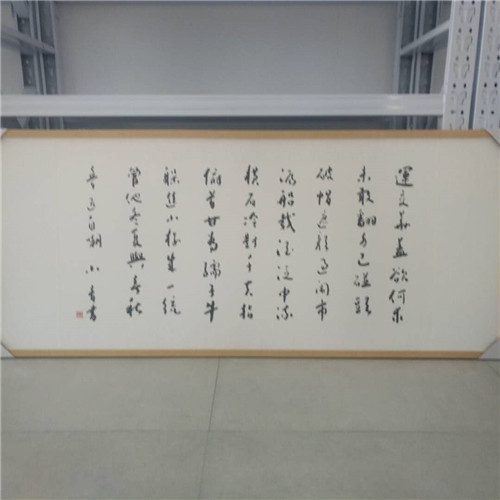 運交華蓋欲何求
未敢翻身已碰頭
破帽遮顏過鬧市
漏船載酒泛中流
橫眉冷對千夫指
俯首甘為孺子牛
躲進小樓成一統
管他冬夏與春秋
魯迅自嘲 小 書